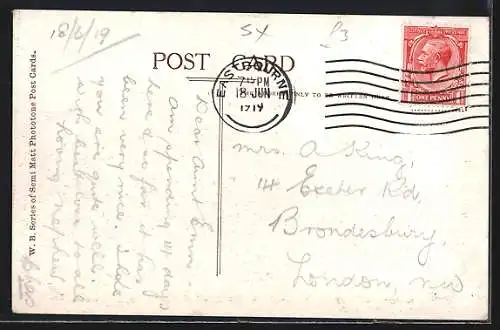 18/6/19
SX
P3
POST CARD
EASTBOURNE
7 PM
18 JUN
1919
ONLY TO BE WRITTEN HERE
ONE PENNY
W. B. Series of Semi Matt Phototone Post Cards.
Dear Aunt Emm
Am spending 14 days
here & so far it has
been very nice. I hope
you are quite well.
with best love to all
loving nephew
Mrs. A King,
14 Exeter Rd,
Brondesbury,
London, NW